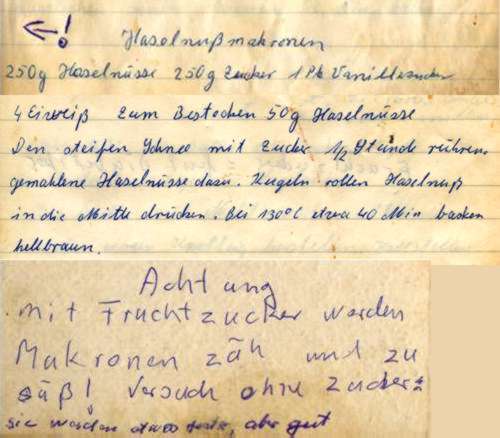 !
Haselnußmakronen
250g Haselnüsse 250g Zucker 1 Pk Vanillezucker
4 Eiweiß zum Bestecken 50g Haselnüsse
Den steifen Schnee mit Zucker 1/2 Stunde rühren
gemahlene Haselnüsse dazu. Kugeln rollen Haselnuß
in die Mitte drücken. Bei 130°C etwa 40 Min backen
hellbraun.
Achtung
mit Fruchtzucker werden
Makronen zäh und zu
süß! Versuch ohne Zucker:
sie werden etwas feste, aber gut